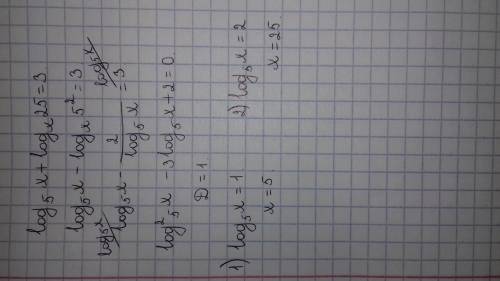 log₅x + logₓ25 = 3
log₅x - logₓ5² = 3
log₅x - 2/log₅x = 3
log²₅x - 3log₅x + 2 = 0
D = 1
1) log₅x = 1 2) log₅x = 2
x = 5 x = 25